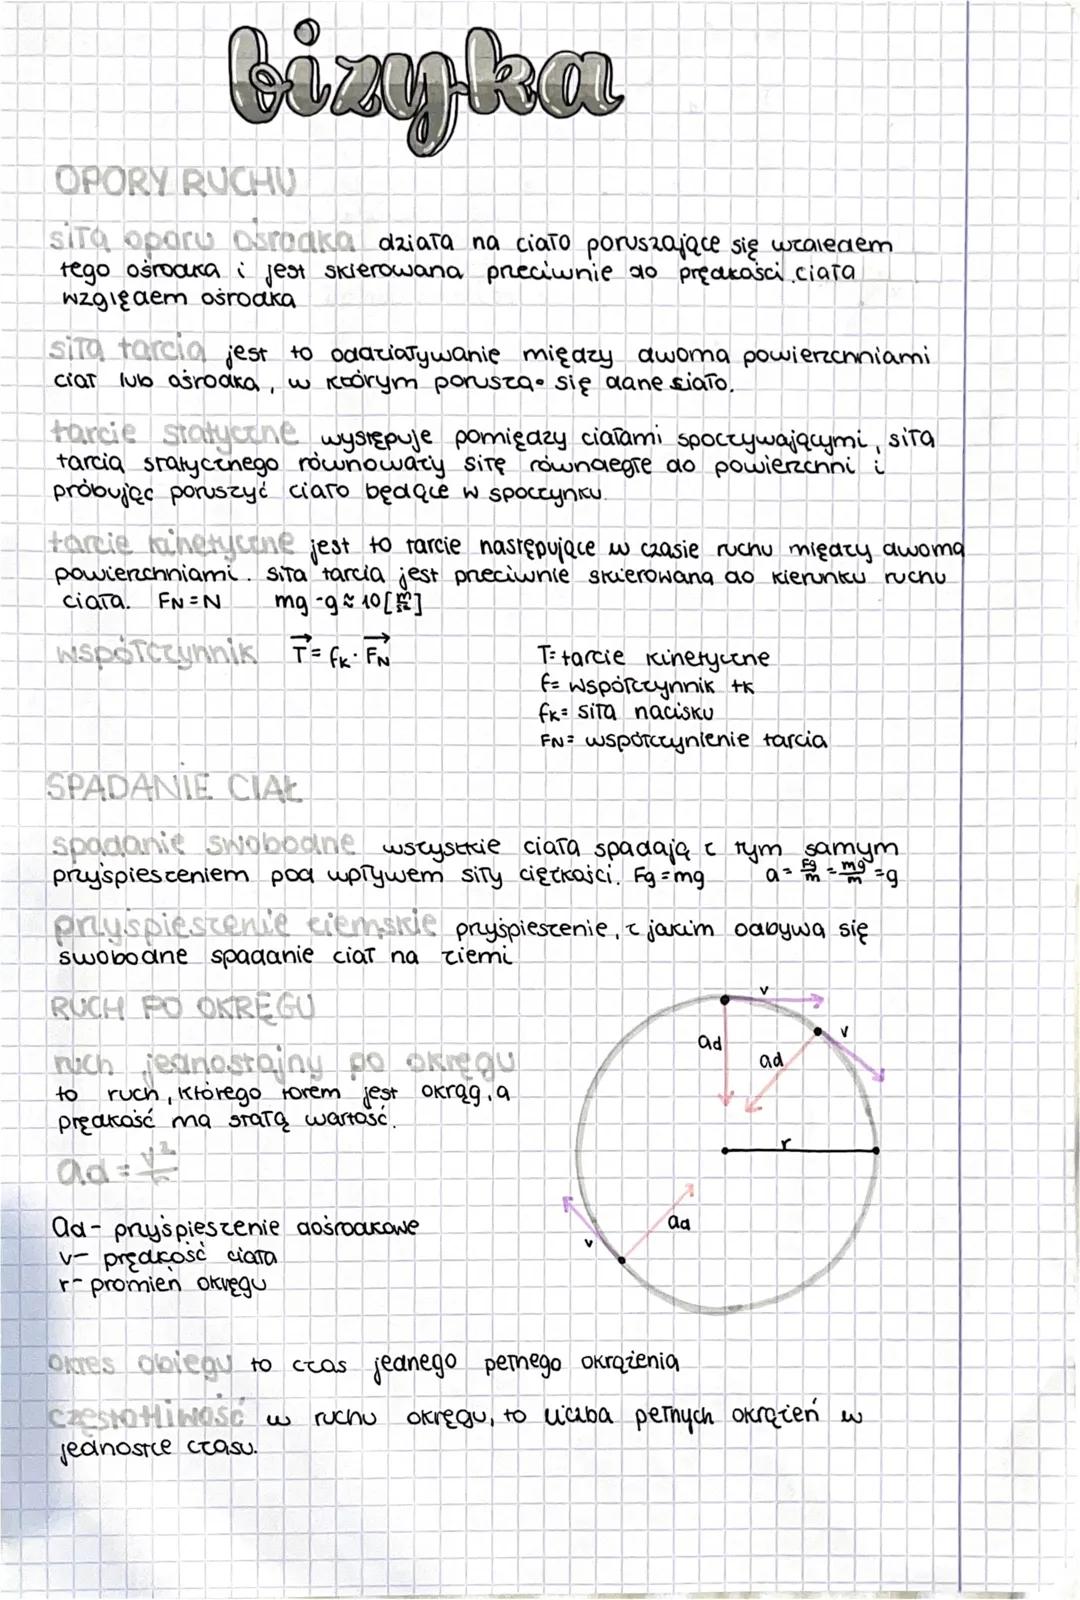 fizyka
OPORY RUCHU
siła oporu ośrodka działa na ciało poruszające się względem
tego ośrodka i jest skierowana przeciwnie do prędkości ciała
względem ośrodka
siła tarcia jest to oddziaływanie między dwoma powierzchniami
ciał lub ośrodka, w którym porusza się dane ciało.
tarcie statyczne występuje pomiędzy ciałami spoczywającymi, siła
tarcia statycznego równoważy siłę równoległe do powierzchni i
próbując poruszyć ciało będące w spoczynku.
tarcie kinetyczne jest to tarcie następujące w czasie ruchu między dwoma
powierzchniami. siła tarcia jest przeciwnie skierowana do kierunku ruchu
ciała. FN=N mg -g≈10[m/s²]
współczynnik T→ = fk · FN→
T= tarcie kinetyczne
f= współczynnik tk
fk= siła nacisku
FN= współczynienie tarcia
SPADANIE CIAŁ
spadanie swobodne wszystkie ciała spadają z tym samym
przyśpieszeniem pod wpływem siły ciężkości. Fg=mg a = Fg/m = mg/m = g
przyśpieszenie ziemskie przyśpieszenie, z jakim odbywa się
swobodne spadanie ciał na ziemi
RUCH PO OKRĘGU
ruch jednostajny po okręgu
to ruch, którego torem jest okrąg, a
prędkość ma stałą wartość.
ad = v²/r
ad- przyśpieszenie dośrodkowe
v- prędkość ciała
r- promień okręgu
v
v
ad
ad
r
ad
v
okres obiegu to czas jednego pełnego okrążenia
częstotliwość w ruchu okręgu, to liczba pełnych okrążeń w
jednostce czasu.